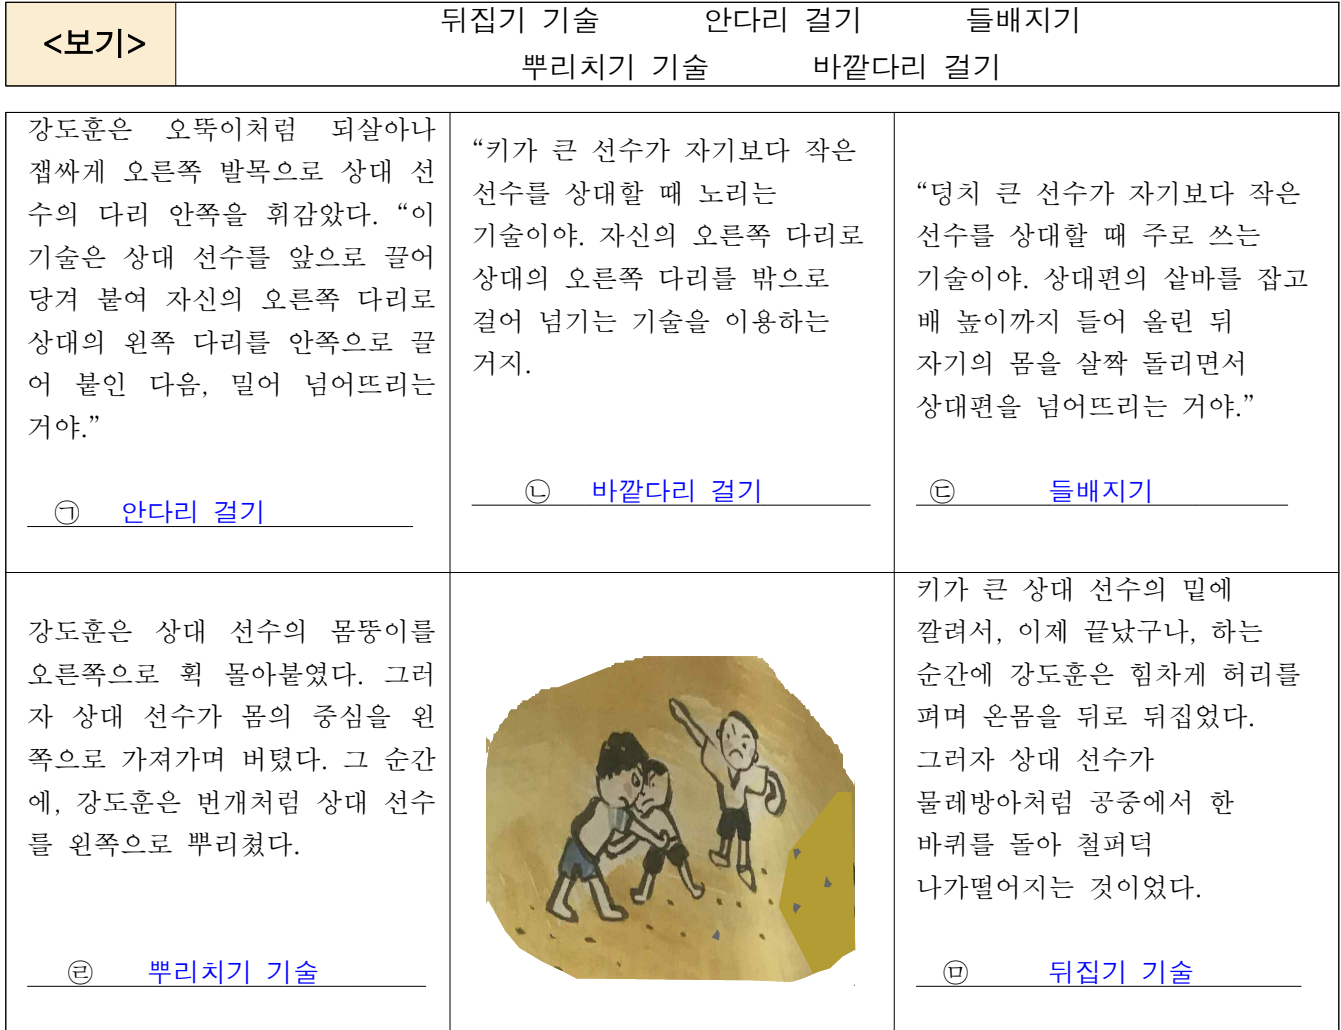 <보기>
뒤집기 기술 안다리 걸기 들배지기
뿌리치기 기술 바깥다리 걸기
강도훈은 오뚝이처럼 되살아나
잽싸게 오른쪽 발목으로 상대 선
수의 다리 안쪽을 휘감았다. “이
기술은 상대 선수를 앞으로 끌어
당겨 붙여 자신의 오른쪽 다리로
상대의 왼쪽 다리를 안쪽으로 끌
어 붙인 다음, 밀어 넘어뜨리는
거야.”
㉠ 안다리 걸기
“키가 큰 선수가 자기보다 작은
선수를 상대할 때 노리는
기술이야. 자신의 오른쪽 다리로
상대의 오른쪽 다리를 밖으로
걸어 넘기는 기술을 이용하는
거지.
㉡ 바깥다리 걸기
“덩치 큰 선수가 자기보다 작은
선수를 상대할 때 주로 쓰는
기술이야. 상대편의 샅바를 잡고
배 높이까지 들어 올린 뒤
자기의 몸을 살짝 돌리면서
상대편을 넘어뜨리는 거야.”
㉢ 들배지기
강도훈은 상대 선수의 몸뚱이를
오른쪽으로 획 몰아붙였다. 그러
자 상대 선수가 몸의 중심을 왼
쪽으로 가져가며 버텼다. 그 순간
에, 강도훈은 번개처럼 상대 선수
를 왼쪽으로 뿌리쳤다.
㉣ 뿌리치기 기술
키가 큰 상대 선수의 밑에
깔려서, 이제 끝났구나, 하는
순간에 강도훈은 힘차게 허리를
펴며 온몸을 뒤로 뒤집었다.
그러자 상대 선수가
물레방아처럼 공중에서 한
바퀴를 돌아 철퍼덕
나가떨어지는 것이었다.
㉤ 뒤집기 기술